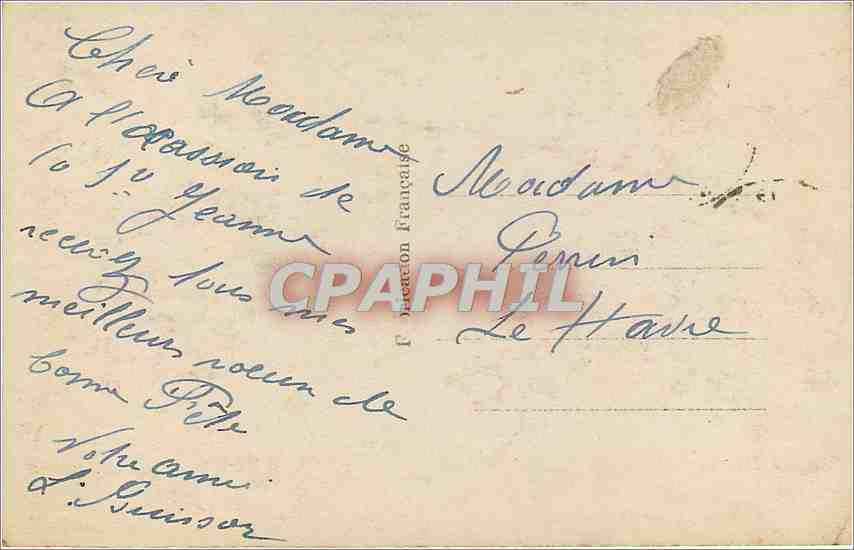 Chère Madame
A l'occassion de
la Ste Jeanne
recevez tous mes
meilleurs voeux de
bonne Fête
Votre amie
L. Buisson
Fabrication Française
CPAPHIL
Madame
Perrin
Le Havre